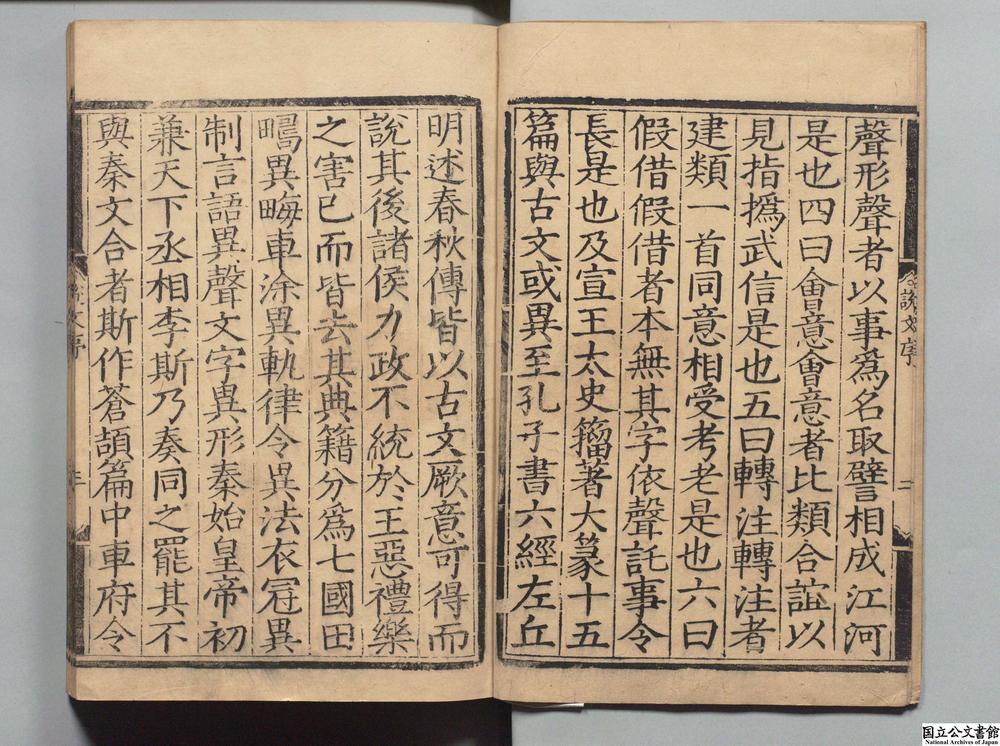 聲形聲者以事爲名取譬相成江河
是也四曰會意會意者比類合誼以
見指撝武信是也五曰轉注轉注者
建類一首同意相受考老是也六曰
假借假借者本無其字依聲託事令
長是也及宣王太史籀著大篆十五
篇與古文或異至孔子書六經左丘
明述春秋傳皆以古文厥意可得而
說其後諸侯力政不統於王惡禮樂
之害已而皆去其典籍分爲七國田
疇異畮車涂異軌律令異法衣冠異
制言語異聲文字異形秦始皇帝初
兼天下丞相李斯乃奏同之罷其不
與秦文合者斯作蒼頡篇中車府令
說文序
二
国立公文書館
National Archives of Japan